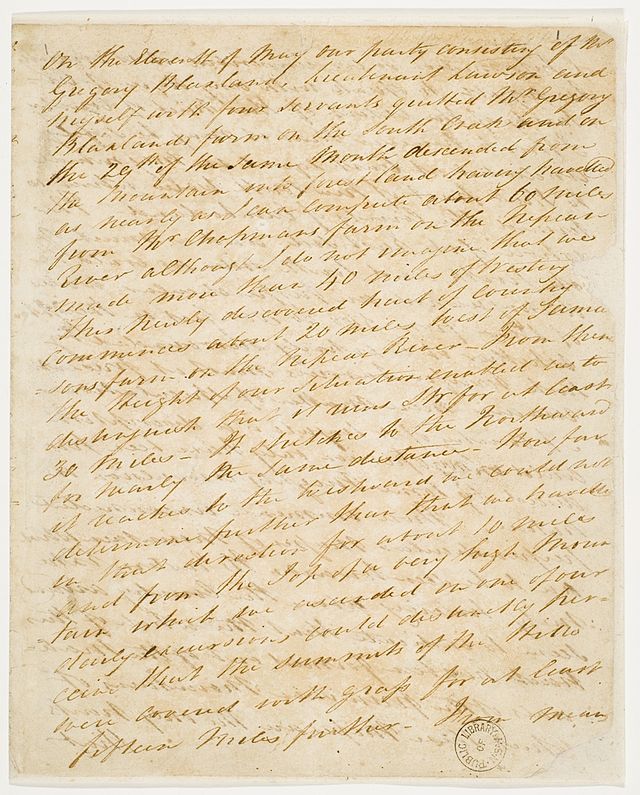 On the Eleventh of May our party consisting of Mr
Gregory Blaxland, Lieutenant Lawson and
myself with four servants quitted Mr Gregory
Blaxlands farm on the South Creek and on
the 29th of the same Month descended from
the Mountain into forest land having travelled
as nearly as I can compute about 60 miles
from Mr Chapmans farm on the Nepean
River although I do not imagine that we
made more than 40 miles of Westing
This newly discovered tract of Country
commences about 20 miles West of
sons farm on the Nepean River - From thence
the height of our Situation enabled us to
distinguish that it runs Str for at least
30 Miles - It stretches to the Northward
for nearly the same distance - How far
it reaches to the Westward we could not
determine further than that we travelled
in that direction for about 10 miles
and from the Top of a very high Moun
-tain which we ascended on one of our
daily excursions could distinctly per-
ceive that the summits of the Hills
were covered with grass for at least
fifteen Miles further - mean
PUBLIC LIBRARY N.S.W.